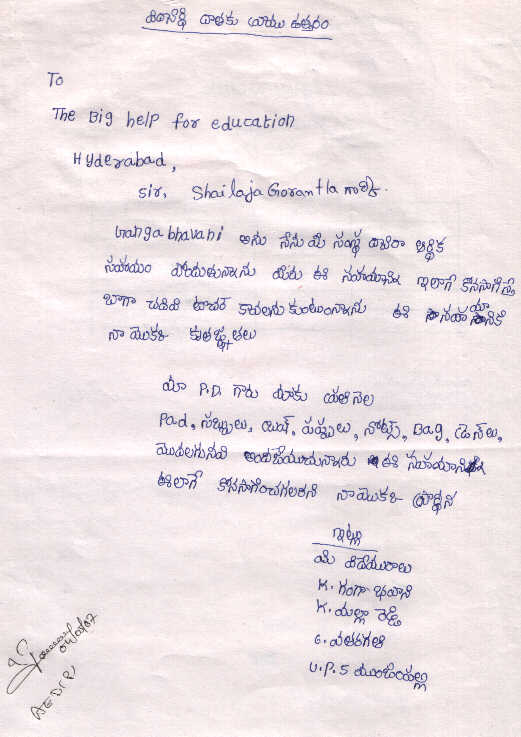 దాతకు వ్రాయు ఉత్తరం
To
The Big help for education
Hyderabad,
Sir, Shailaja Gorantla గారికి.
Ganga bhavani అను నేను మీ సంస్థ ద్వారా ఆర్థిక
సహాయం పొందుతున్నాను మీరు ఈ సహాయాన్ని ఇలాగే కొనసాగిస్తే
బాగా చదివి టీచర్ కావాలనుకుంటున్నాను ఈ సహాయానికి
నా యొక్క కృతజ్ఞతలు
మా P.D. గారు మాకు ప్రతి నెల
Pad, సబ్బులు, బ్రష్, పేస్టులు, నోట్స్, Bag, డ్రెస్‌లు,
మొదలగునవి అందజేయుచున్నారు ఈ సహాయాన్ని
ఇలాగే కొనసాగించగలరని నా యొక్క ప్రార్థన
ఇట్లు
మీ విధేయురాలు
K. గంగా భవాని
K. మల్లా రెడ్డి
6. వ తరగతి
U.P.S
AEDIP